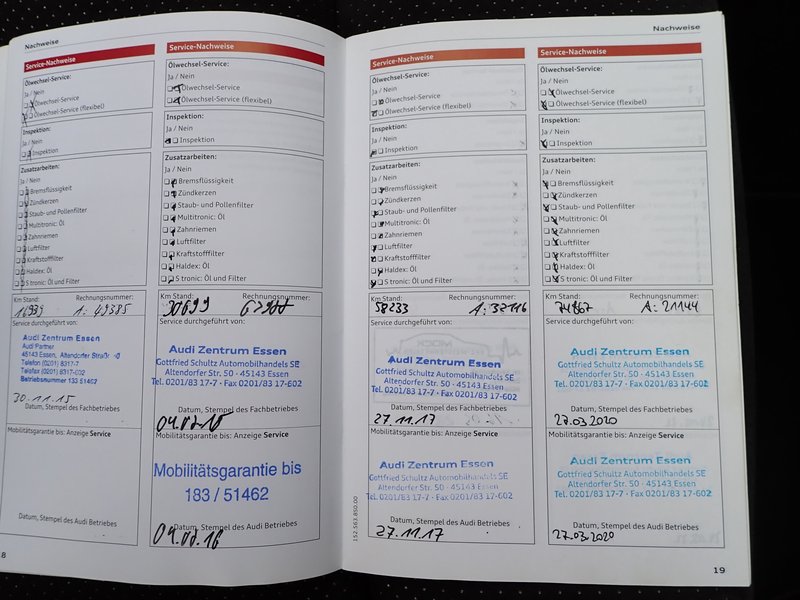 Nachweise
Service-Nachweise
Ölwechsel-Service:
Ja / Nein
Ölwechsel-Service
Ölwechsel-Service (flexibel)
Inspektion:
Ja / Nein
Inspektion
Zusatzarbeiten:
Ja / Nein
Bremsflüssigkeit
Zündkerzen
Staub- und Pollenfilter
Multitronic: Öl
Zahnriemen
Luftfilter
Kraftstofffilter
Haldex: Öl
S tronic: Öl und Filter
Km Stand: Rechnungsnummer:
16939 A: 49385
Service durchgeführt von:
Audi Zentrum Essen
Audi Partner
45143 Essen, Altendorfer Straße
Telefon (0201) 8317-7
Telefax (0201) 8317-602
Betriebsnummer 133 51462
30.11.15
Datum, Stempel des Fachbetriebes
Mobilitätsgarantie bis: Anzeige Service
Datum, Stempel des Audi Betriebes
8
Service-Nachweise
Ölwechsel-Service:
Ja / Nein
Ölwechsel-Service
Ölwechsel-Service (flexibel)
Inspektion:
Ja / Nein
Inspektion
Zusatzarbeiten:
Ja / Nein
Bremsflüssigkeit
Zündkerzen
Staub- und Pollenfilter
Multitronic: Öl
Zahnriemen
Luftfilter
Kraftstofffilter
Haldex: Öl
S tronic: Öl und Filter
Km Stand: Rechnungsnummer:
30699
Service durchgeführt von:
Audi Zentrum Essen
Gottfried Schultz Automobilhandels SE
Altendorfer Str. 50 · 45143 Essen
Tel. 0201/83 17-7 · Fax 0201/83 17-602
Datum, Stempel des Fachbetriebes
Mobilitätsgarantie bis: Anzeige Service
Mobilitätsgarantie bis
183 / 51462
Datum, Stempel des Audi Betriebes
Nachweise
Service-Nachweise
Ölwechsel-Service:
Ja / Nein
Ölwechsel-Service
Ölwechsel-Service (flexibel)
Inspektion:
Ja / Nein
Inspektion
Zusatzarbeiten:
Ja / Nein
Bremsflüssigkeit
Zündkerzen
Staub- und Pollenfilter
Multitronic: Öl
Zahnriemen
Luftfilter
Kraftstofffilter
Haldex: Öl
S tronic: Öl und Filter
Km Stand: Rechnungsnummer:
58233 A: 37116
Service durchgeführt von:
Audi Zentrum Essen
Gottfried Schultz Automobilhandels SE
Altendorfer Str. 50 · 45143 Essen
Tel. 0201/83 17-7 · Fax 0201/83 17-602
Datum, Stempel des Fachbetriebes
27.11.17
Mobilitätsgarantie bis: Anzeige Service
Audi Zentrum Essen
Gottfried Schultz Automobilhandels SE
Altendorfer Str. 50 · 45143 Essen
Tel. 0201/83 17-7 · Fax 0201/83 17-602
Datum, Stempel des Audi Betriebes
27.11.17
152.562.850.00
Service-Nachweise
Ölwechsel-Service:
Ja / Nein
Ölwechsel-Service
Ölwechsel-Service (flexibel)
Inspektion:
Ja / Nein
Inspektion
Zusatzarbeiten:
Ja / Nein
Bremsflüssigkeit
Zündkerzen
Staub- und Pollenfilter
Multitronic: Öl
Zahnriemen
Luftfilter
Kraftstofffilter
Haldex: Öl
S tronic: Öl und Filter
Km Stand: Rechnungsnummer:
74867 A: 21144
Service durchgeführt von:
Audi Zentrum Essen
Gottfried Schultz Automobilhandels SE
Altendorfer Str. 50 · 45143 Essen
Tel. 0201/83 17-7 · Fax 0201/83 17-602
Datum, Stempel des Fachbetriebes
27.03.2020
Mobilitätsgarantie bis: Anzeige Service
Audi Zentrum Essen
Gottfried Schultz Automobilhandels SE
Altendorfer Str. 50 · 45143 Essen
Tel. 0201/83 17-7 · Fax 0201/83 17-602
Datum, Stempel des Audi Betriebes
27.03.2020
19